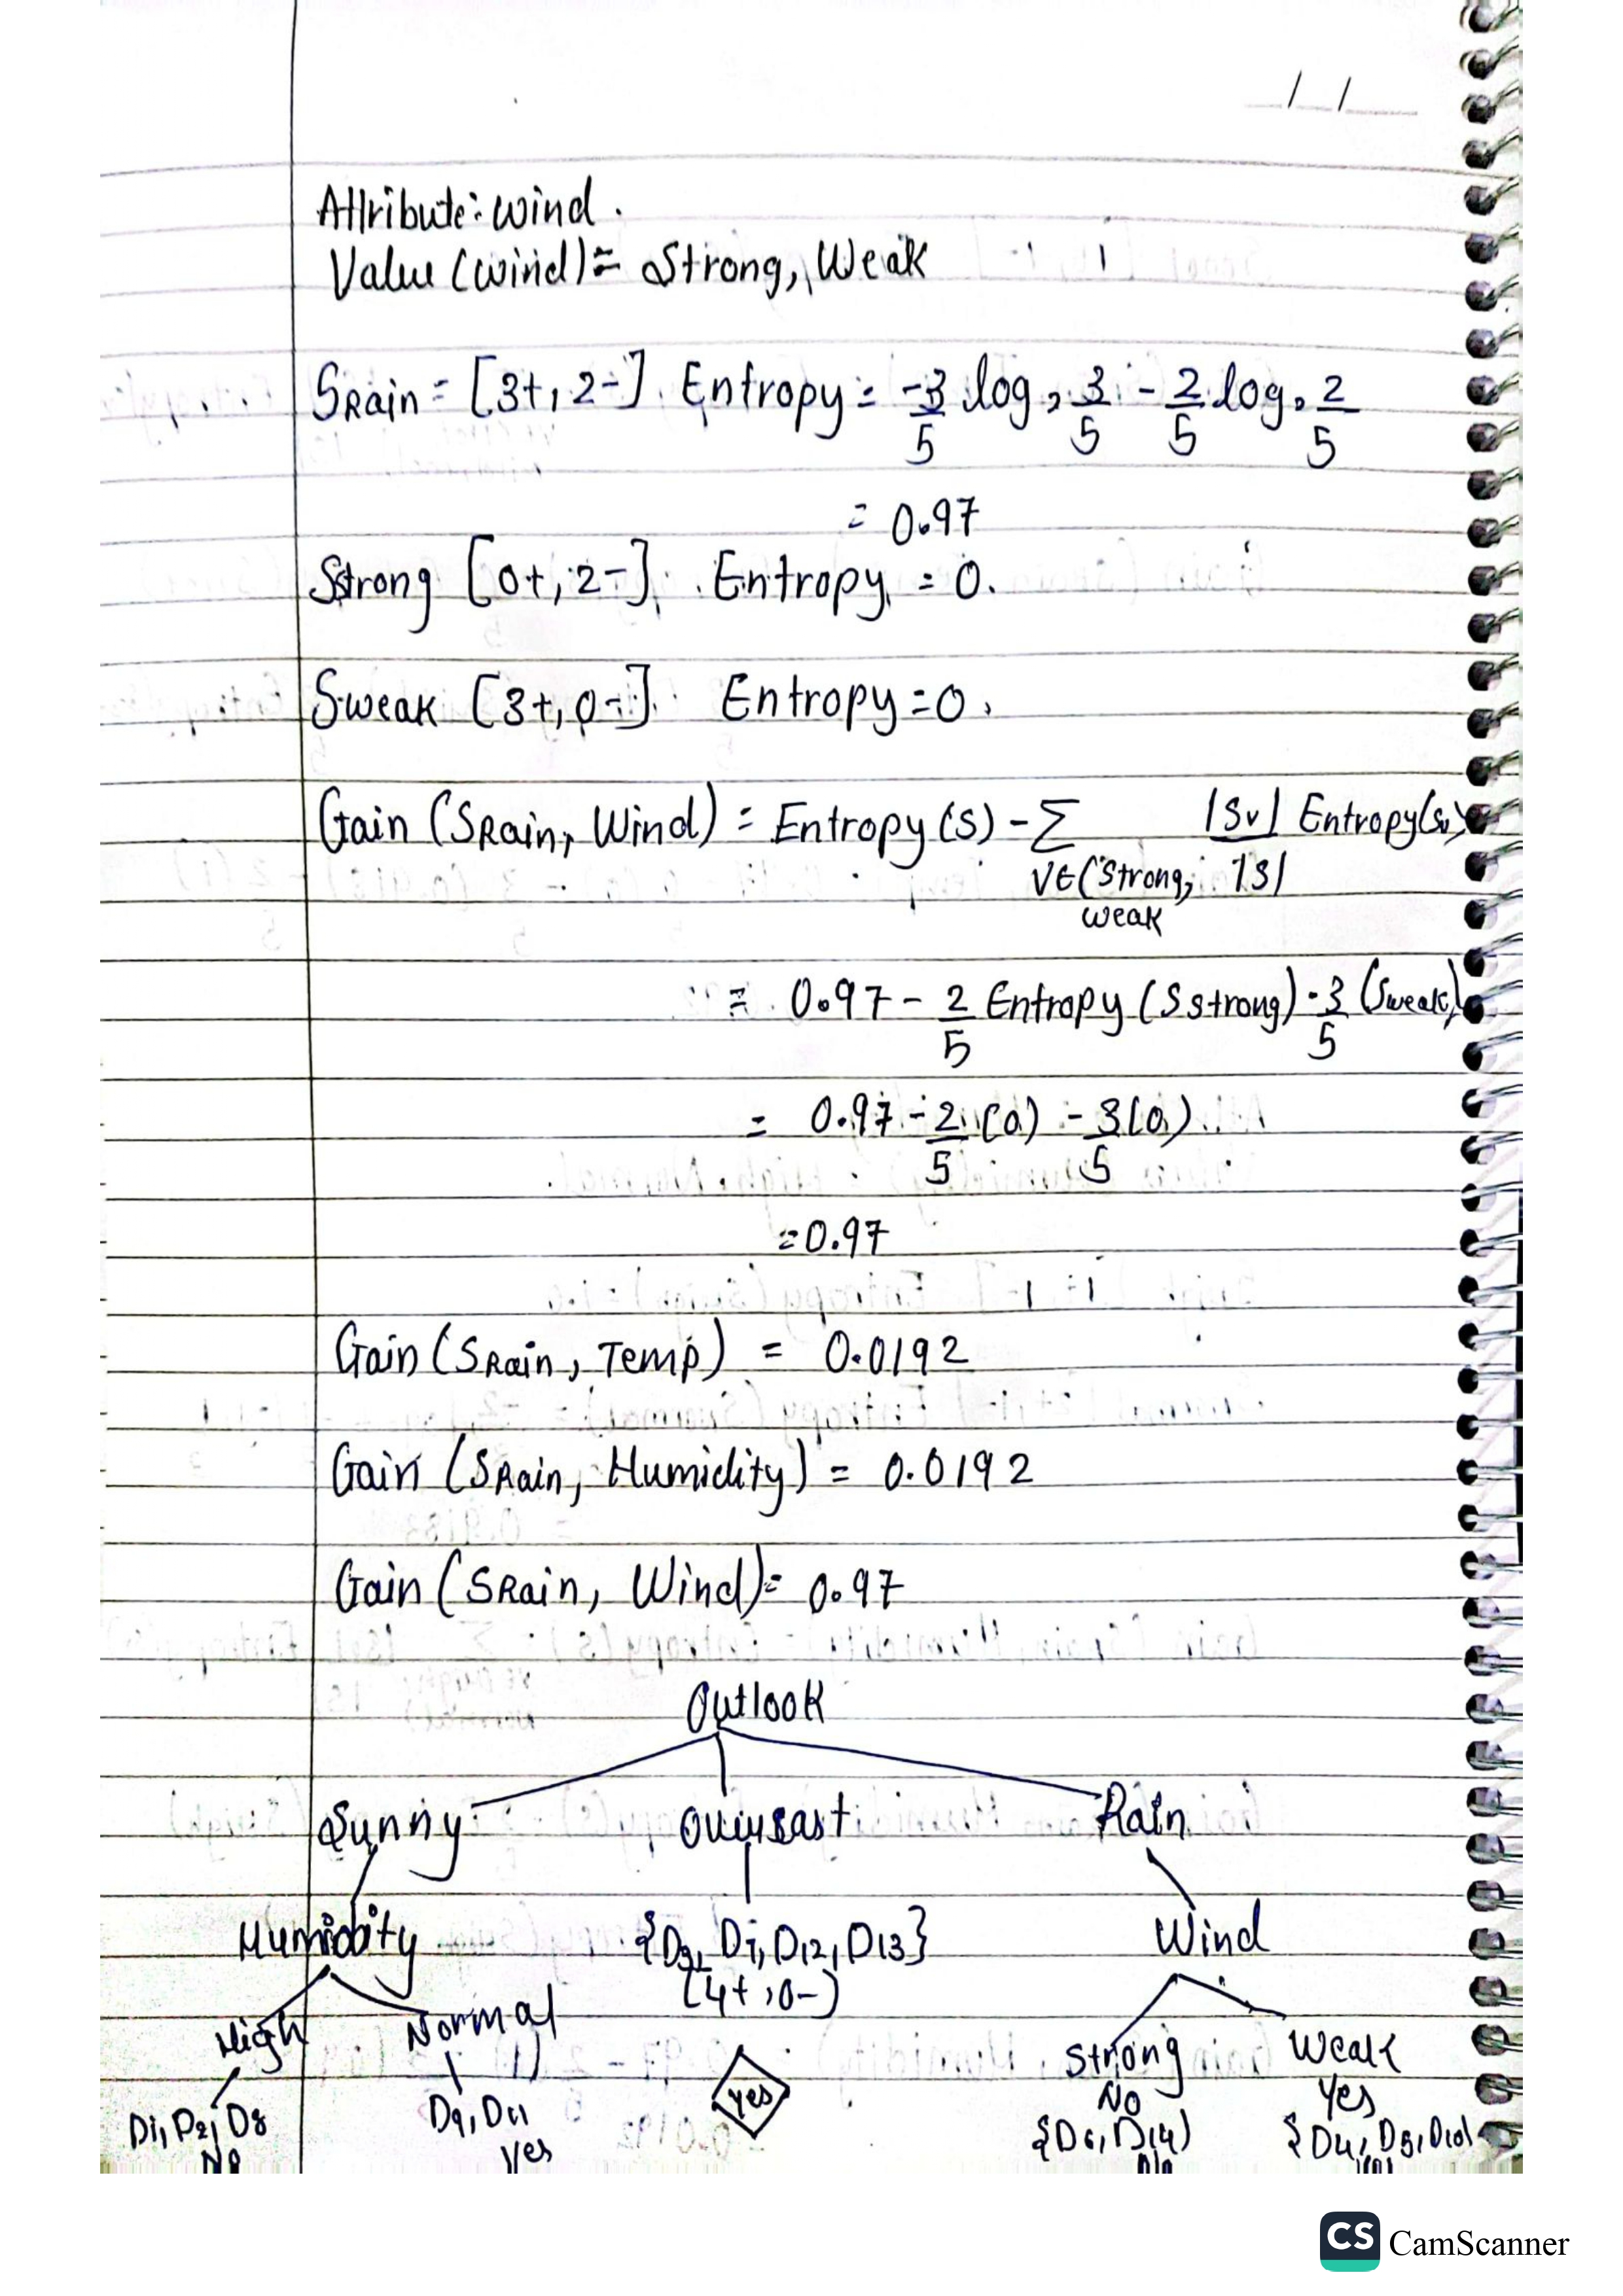 __/__/____
Attribute: wind.
Value (wind) = Strong, Weak
SRain = [3+, 2-] Entropy = -3/5 log2 3/5 - 2/5 log2 2/5
= 0.97
Sstrong [0+, 2-] Entropy = 0.
Sweak [3+, 0-] Entropy = 0.
Gain (SRain, Wind) = Entropy (S) - Σ |Sv| Entropy(Sv)
VE(Strong, |S|
weak
= 0.97 - 2/5 Entropy (Sstrong) - 3/5 (Sweak)
= 0.97 - 2/5 (0) - 3/5 (0)
= 0.97
Gain (SRain, Temp) = 0.0192
Gain (SRain, Humidity) = 0.0192
Gain (SRain, Wind) = 0.97
Outlook
Sunny Overcast Rain
Humidity {D3, D7, D12, D13} Wind
[4+, 0-]
High Normal Strong Weak
yes No Yes
D1, D2, D8 D9, D11 {D6, D14} {D4, D5, D10}
No Yes No Yes
CS CamScanner